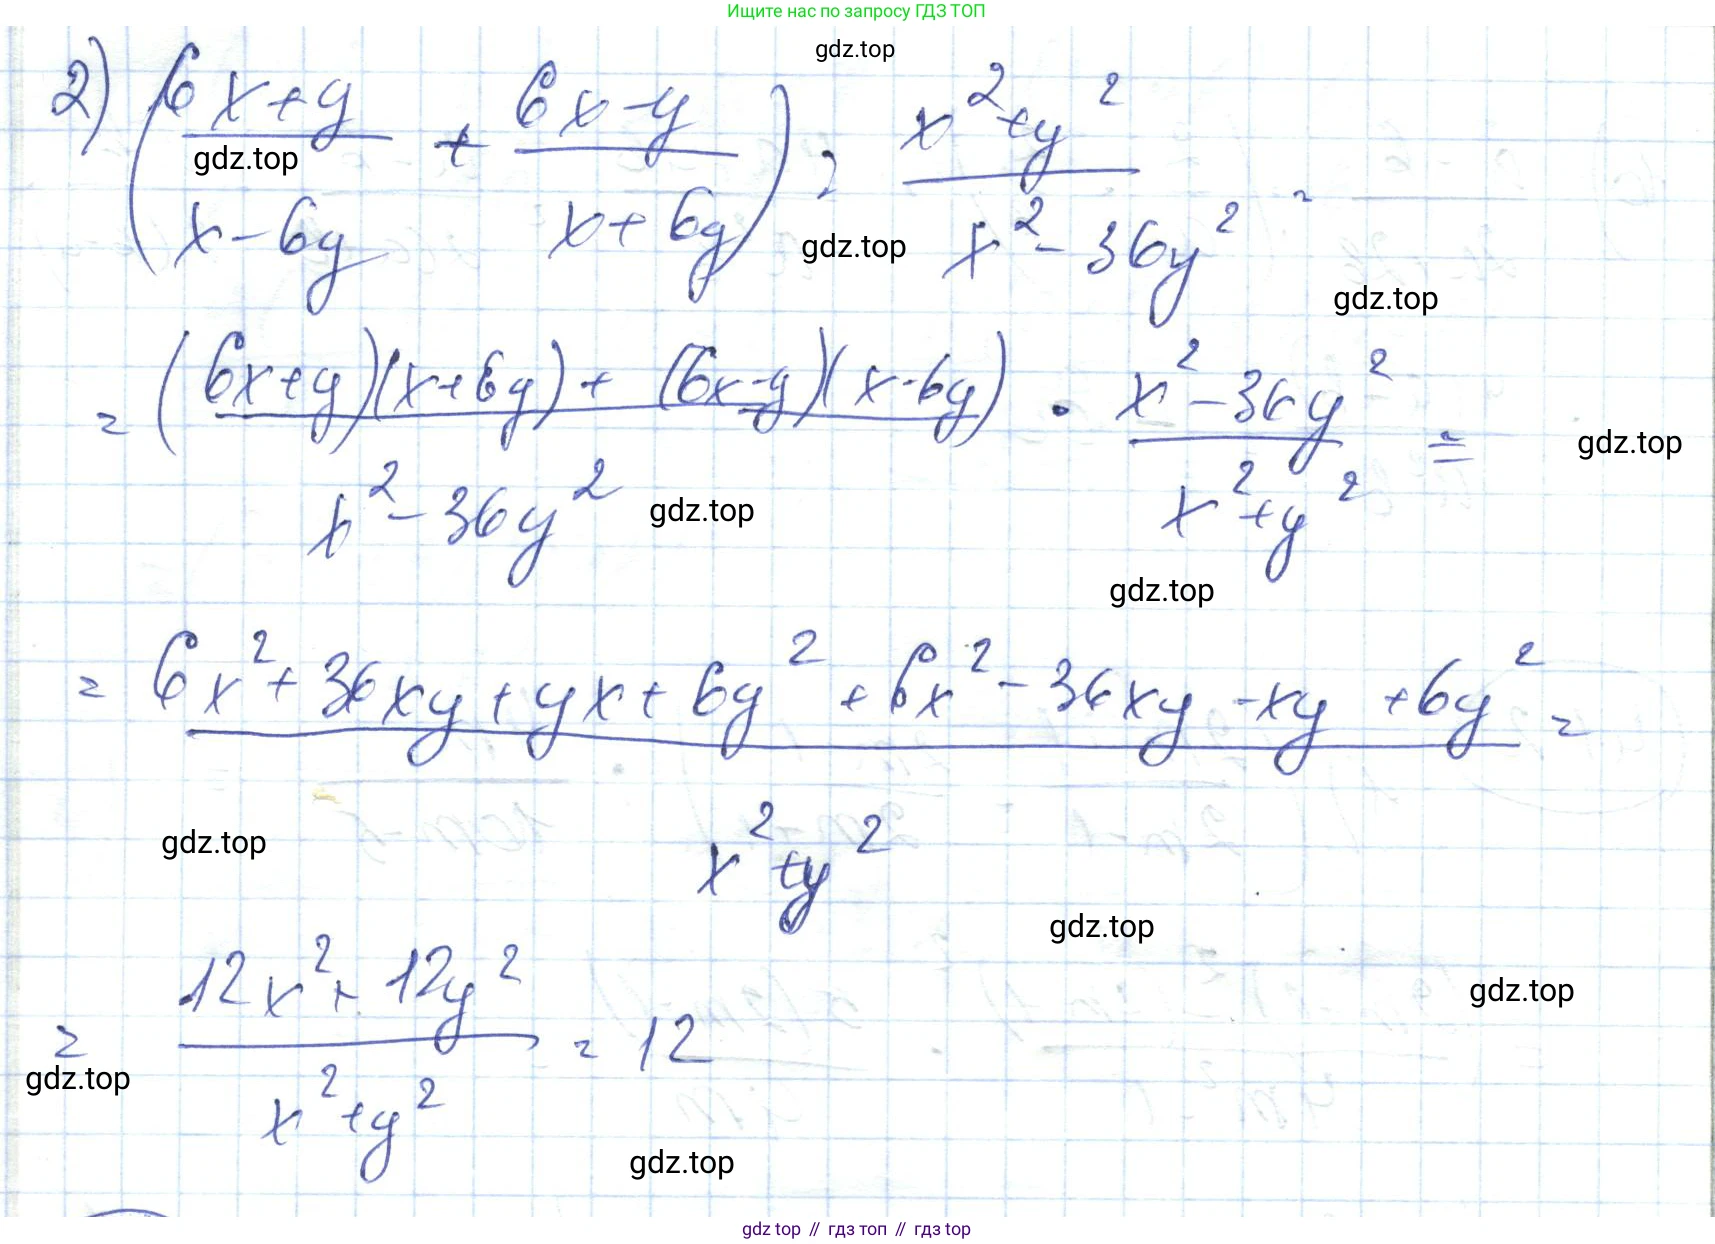 Ищите нас по запросу ГДЗ ТОП
gdz.top
2) ( (6x+y)/(x-6y) + (6x-y)/(x+6y) ) : (x²+y²)/(x²-36y²) =
gdz.top
gdz.top
gdz.top
= ((6x+y)(x+6y) + (6x-y)(x-6y))/(x²-36y²) · (x²-36y²)/(x²+y²) =
gdz.top
gdz.top
gdz.top
= (6x²+36xy+yx+6y²+6x²-36xy-xy+6y²)/(x²+y²) =
gdz.top
gdz.top
gdz.top
= (12x²+12y²)/(x²+y²) = 12
gdz.top
gdz.top
gdz top // гдз топ // гдз top